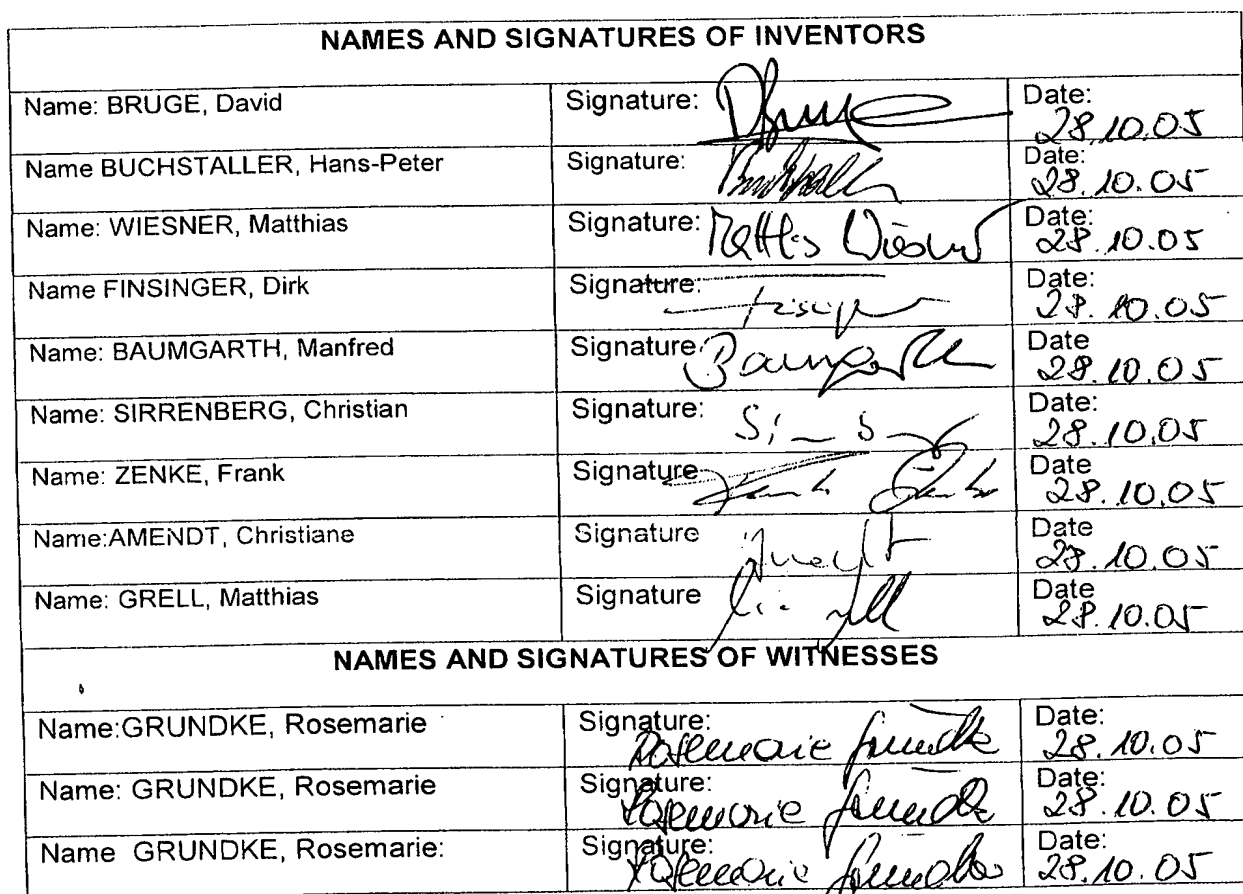 NAMES AND SIGNATURES OF INVENTORS
Name: BRUGE, David Signature: Date: 28.10.05
Name BUCHSTALLER, Hans-Peter Signature: Date: 28.10.05
Name: WIESNER, Matthias Signature: Date: 28.10.05
Name FINSINGER, Dirk Signature: Date: 28.10.05
Name: BAUMGARTH, Manfred Signature: Baumgarth Date 28.10.05
Name: SIRRENBERG, Christian Signature: Date: 28.10.05
Name: ZENKE, Frank Signature Frank Zenke Date 28.10.05
Name:AMENDT, Christiane Signature Amendt Date 28.10.05
Name: GRELL, Matthias Signature Date 28.10.05
NAMES AND SIGNATURES OF WITNESSES
Name:GRUNDKE, Rosemarie Signature: Rosemarie Grundke Date: 28.10.05
Name: GRUNDKE, Rosemarie Signature: Rosemarie Grundke Date: 28.10.05
Name GRUNDKE, Rosemarie: Signature: Rosemarie Grundke Date: 28.10.05